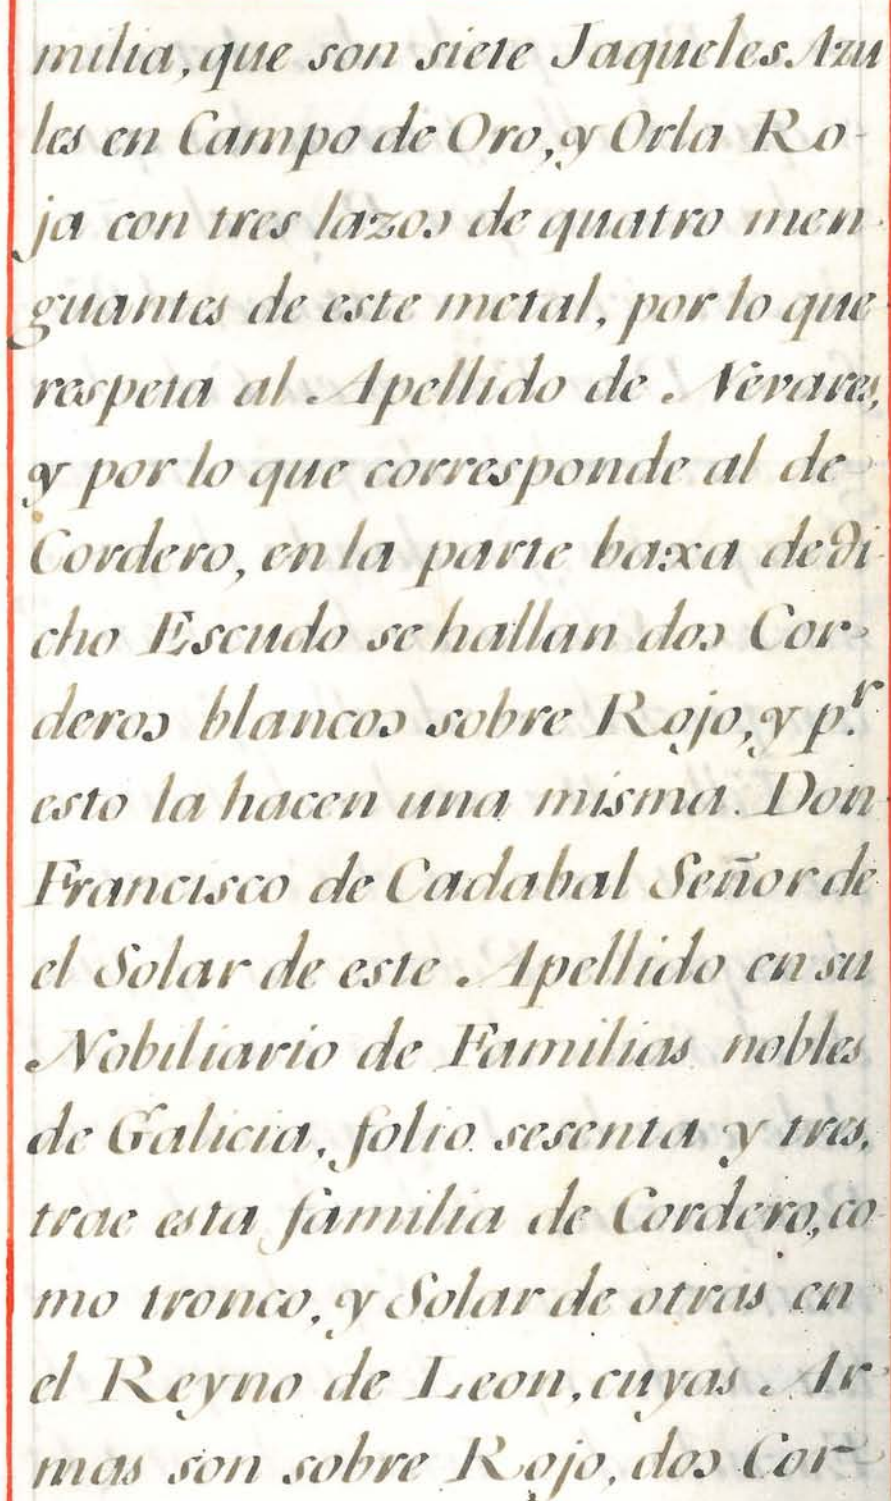 milia, que son siete Jaqueles Azu
les en Campo de Oro, y Orla Ro-
ja con tres lazos de quatro men-
guantes de este metal, por lo que
respeta al Apellido de Nevares,
y por lo que corresponde al de
Cordero, en la parte baxa de di-
cho Escudo se hallan dos Cor-
deros blancos sobre Rojo, y p.r
esto la hacen una misma. Don
Francisco de Cadabal Señor de
el Solar de este Apellido en su
Nobiliario de Familias nobles
de Galicia, folio sesenta y tres,
trae esta familia de Cordero, co-
mo tronco, y Solar de otras en
el Reyno de Leon, cuyas Ar-
mas son sobre Rojo, dos Cor-